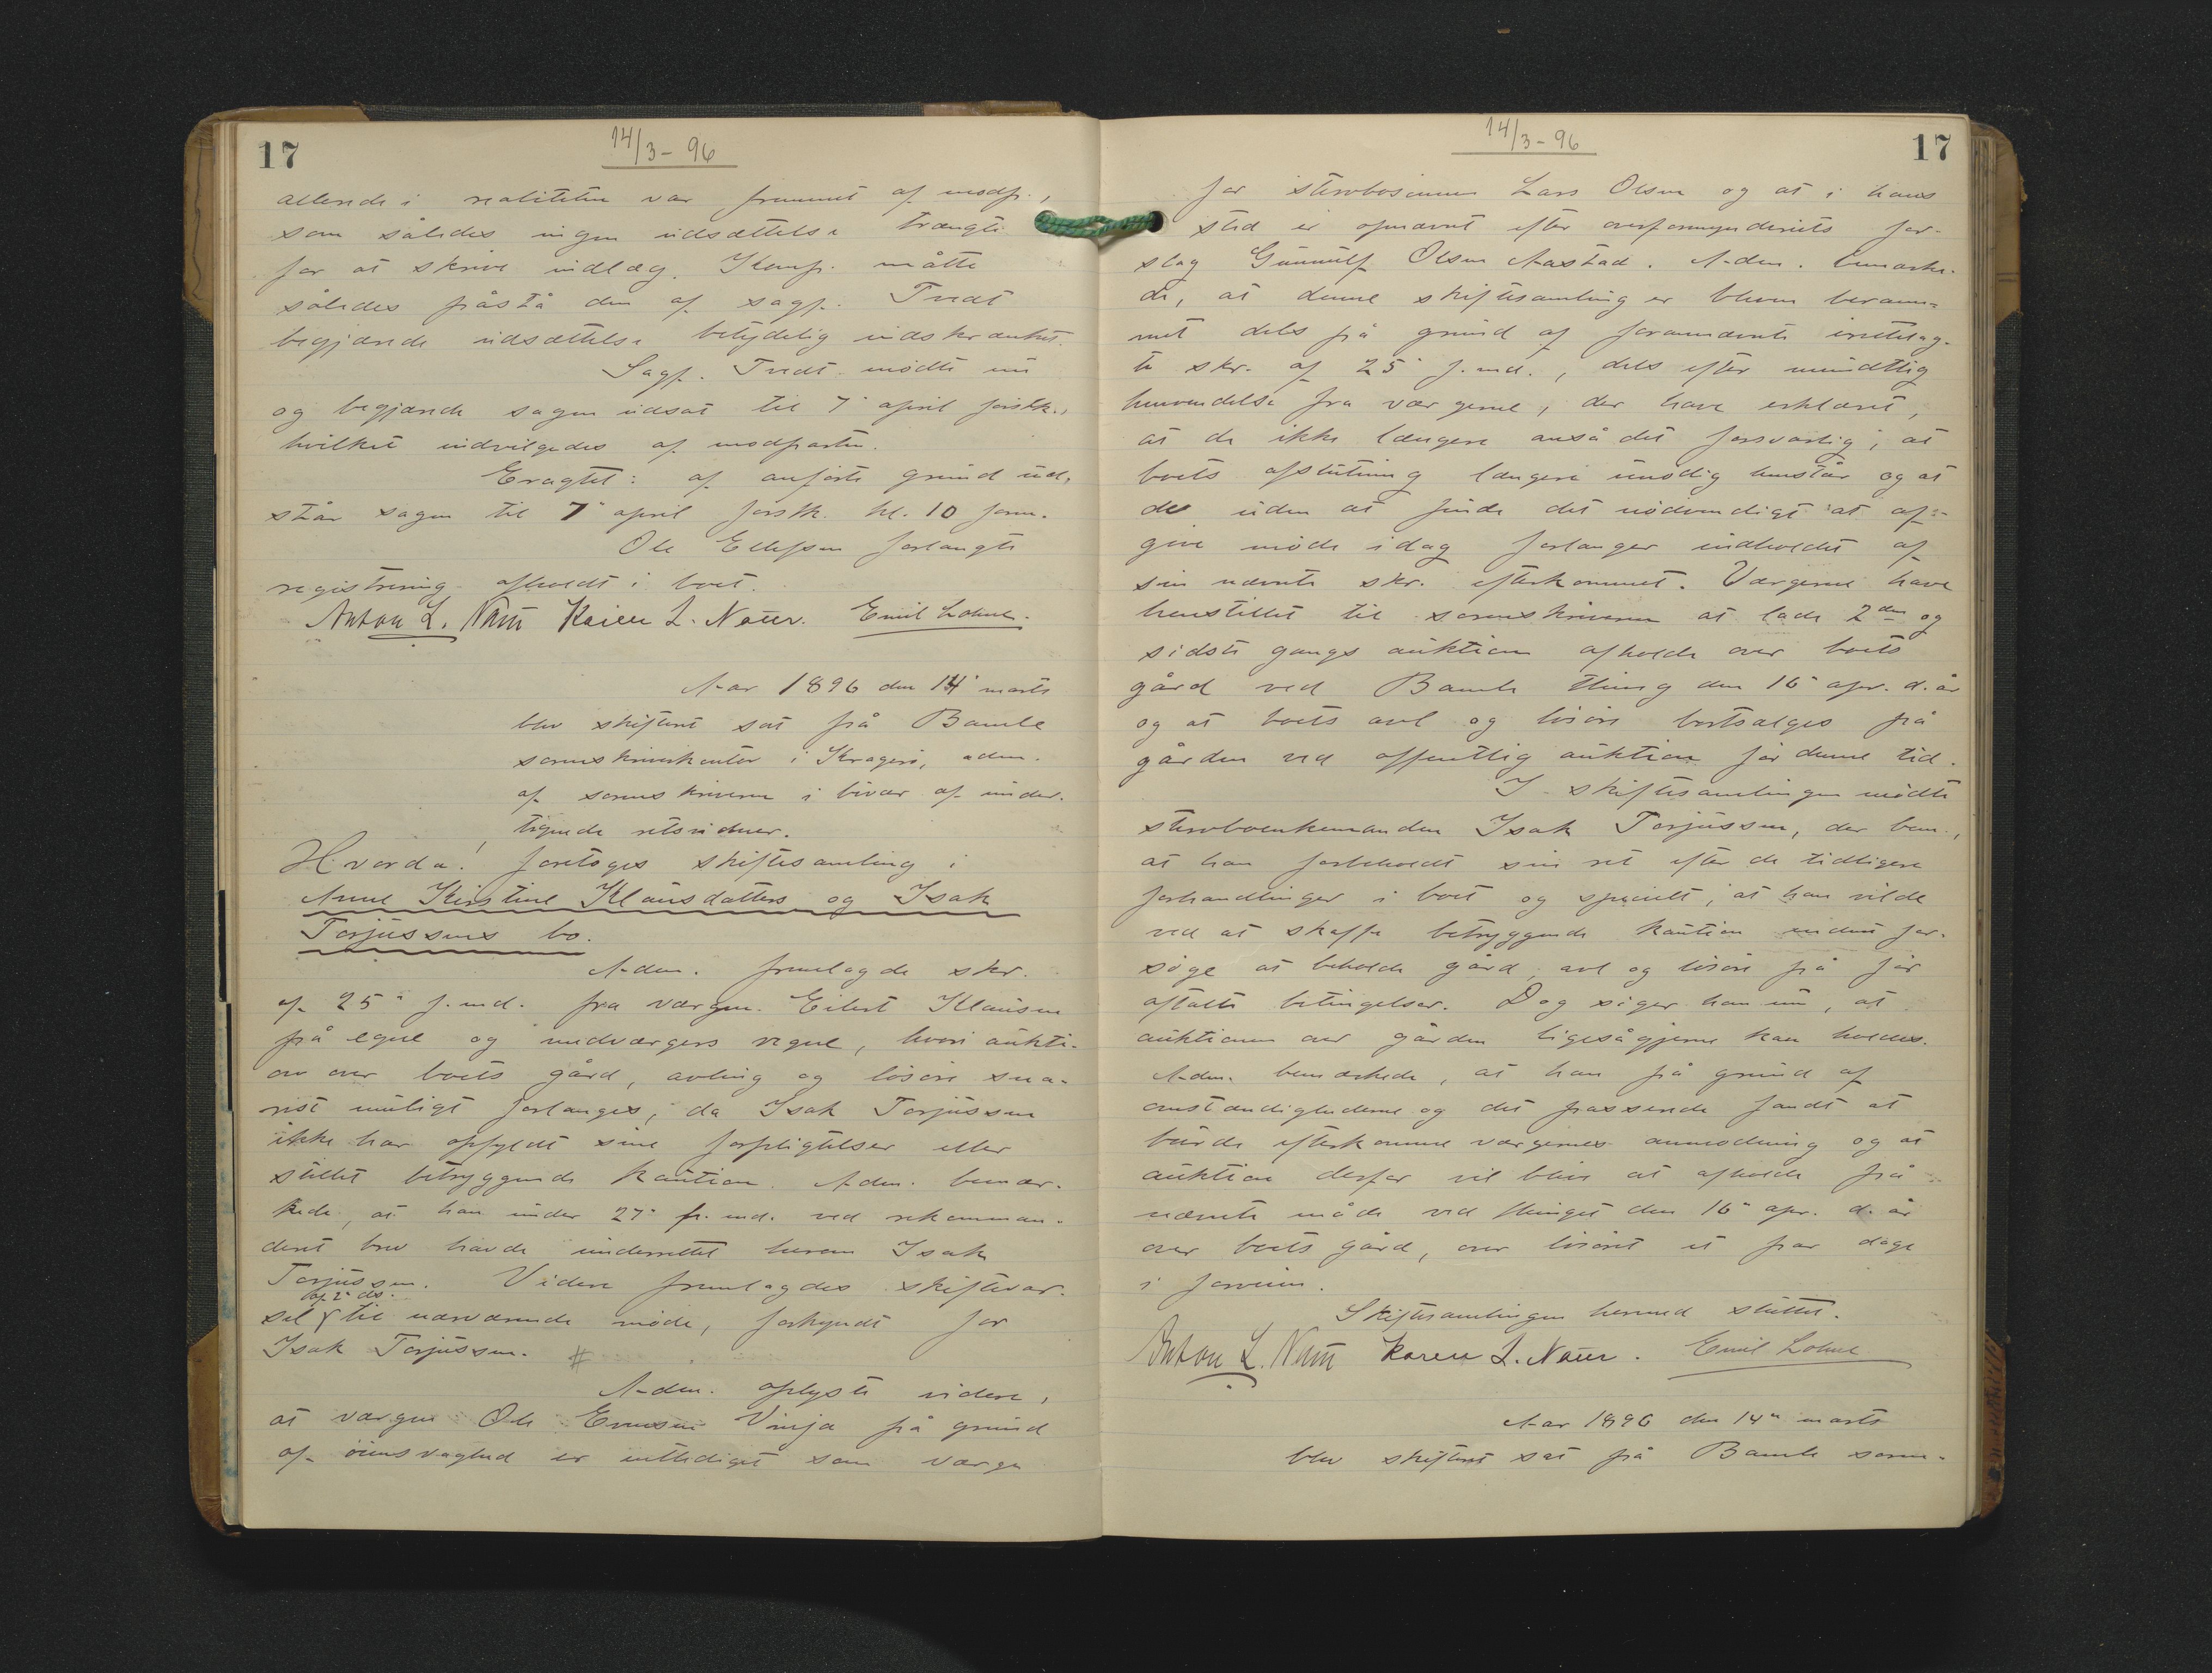 17
14/3-96
allerede i realiteten var fremmet af modp.,
som således ingen udsættelse trængte
for at skrive indlæg. Komp. måtte
således påstå den af sagf. Tvedt
begjærede udsættelse betydelig indskrænket.
Sagf. Tvedt mødte nu
og begjærede sagen udsat til 7' april førstk.,
hvilket indvilgedes af modparten.
Eragtet: af anførte grund ud-
står sagen til 7' april førstk. kl. 10 form.
Ole Ellefsen forlangte
registrering afholdt i boet.
Anton L. Næss Karen L. Næss. Emil Lohne.
Aar 1896 den 14' marts
blev skifteret sat på Bamle
sorenskriverkontor i Kragerø, adm.
af sorenskriveren i bivær af under-
tegnede retsvidner.
Hvorda! foretoges skiftesamling i
Anne Kirstine Klausdatters og Isak
Torjussens bo.
Adm. fremlagde skr.
af 25' f. md. fra værgen Eilert Klausen
på egne og medværgers vegne, hvori aukti-
on over boets gård, avling og løsøre sna-
rest muligt forlanges, da Isak Torjussen
ikke har opfyldt sine forpligtelser eller
stillet betryggende kaution. Adm. bemær-
kede, at han under 27' f. md. ved rekomman-
deret brev havde underrettet herom Isak
Torjussen. Videre fremlagdes skiftevar-
af 2' ds.
sel til nærværende møde, forkyndt for
Isak Torjussen. #
Adm. oplyste videre,
at værgen Ole Evensen Vinja på grund
af øiensvaghed er entlediget som værge
14/3-96
17
for sterbosønnen Lars Olsen og at i hans
sted er opnævnt efter overformynderiets for-
slag Gunnulf Olsen Aastad. Adm. bemærke-
de, at denne skiftesamling er bleven beram-
met dels på grund af forannævnte irettelag-
te skr. af 25' f. md., dels efter mundtlig
henvendelse fra værgerne, der have erklæret,
at de ikke længere anså det forsvarlig, at
boets afslutning længere unødig henstår og at
de uden at finde det nødvendigt at af-
give møde idag forlanger indholdet af
sin nævnte skr. efterkommet. Værgerne have
henstillet til sorenskriveren at lade 2den og
sidste gangs auktion afholde over boets
gård ved Bamle thing den 16' apr. d. år
og at boets avl og løsøre bortsælges på
gården ved offentlig auktion før denne tid.
I skiftesamlingen mødte
sterboenkemanden Isak Torjussen, der bem.,
at han forbeholdt sin ret efter de tidligere
forhandlinger i boet og specielt, at han vilde
ved at skaffe betryggende kaution endnu for-
søge at beholde gård, avl og løsøre på før
aftalte betingelser. Dog siger han nu, at
auktionen over gården ligesågjerne kan holdes.
Adm. bemærkede, at han på grund af
omstændighederne og det passende fandt at
burde efterkomme værgernes anmodning og at
auktion derfor vil blive at afholde på
nævnte måde ved thinget den 16' apr. d. år
over boets gård, over løsøret et par dage
i forveien.
Skiftesamlingen hermed sluttet.
Anton L. Næss Karen L. Næss. Emil Lohne
Aar 1896 den 14' marts
blev skifteret sat på Bamle soren-